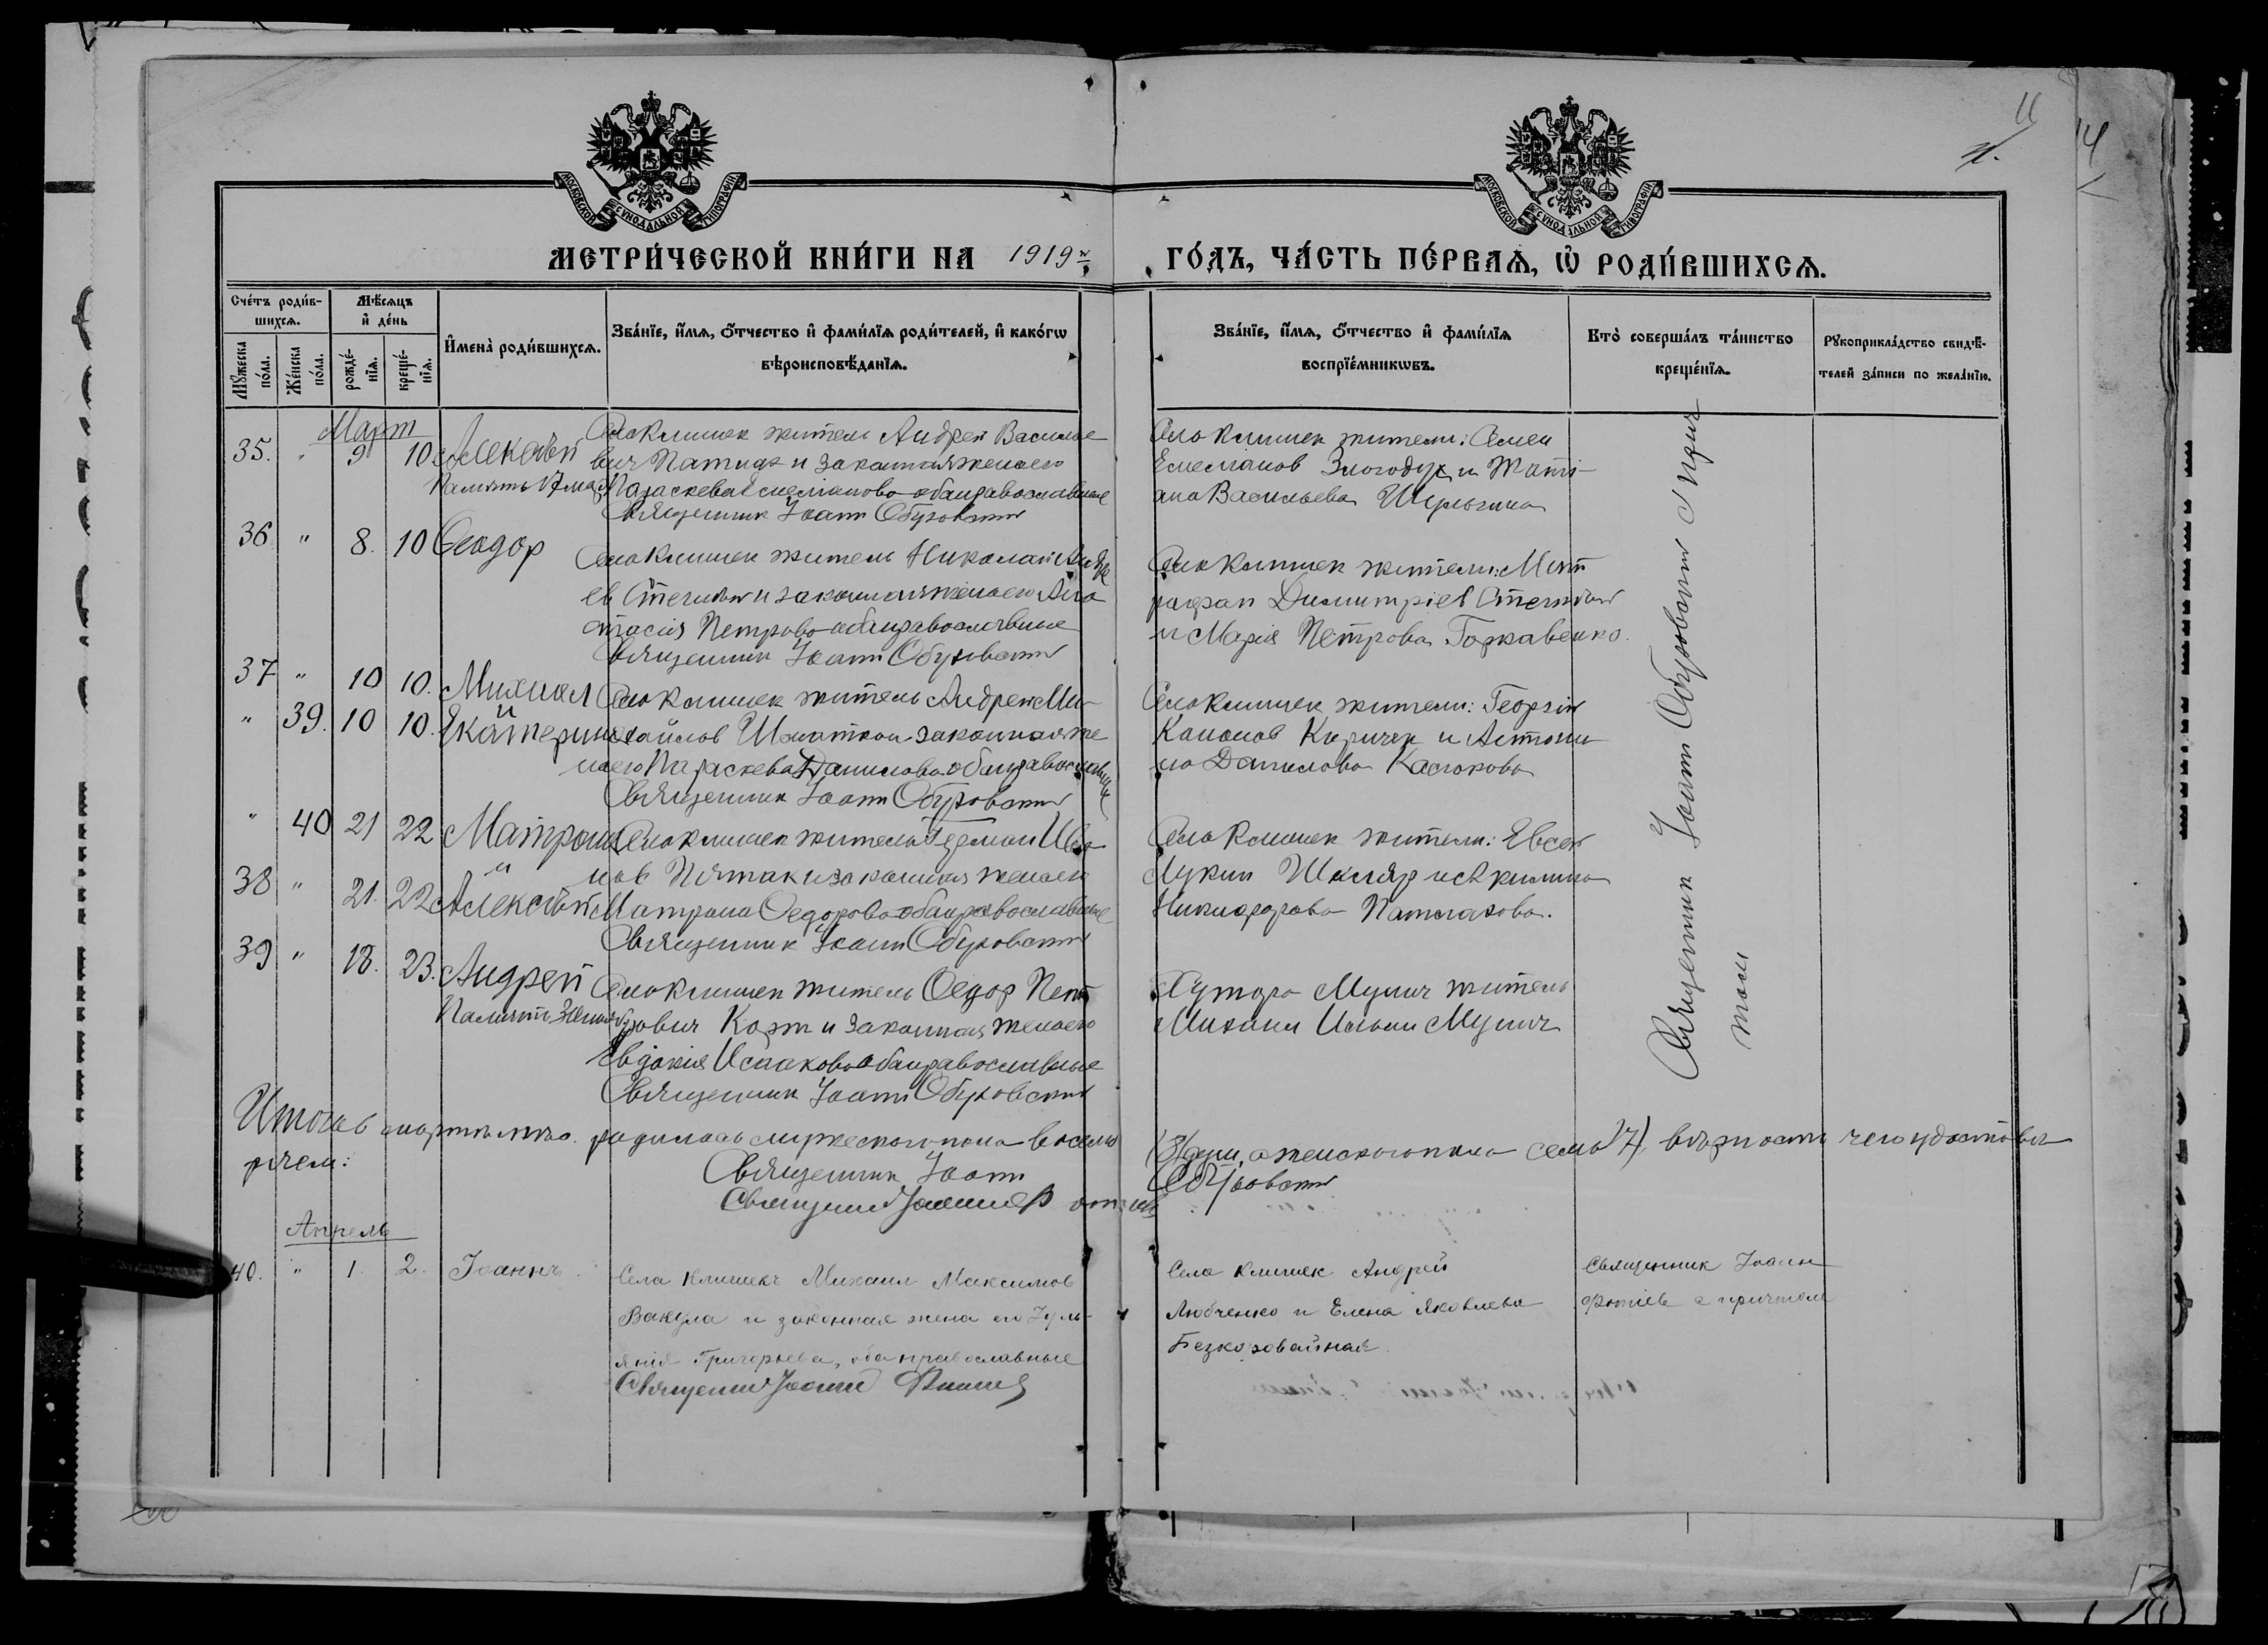 11
14
МОСКОВСКОЙ СУНОДАЛЬНОЙ ТИПОГРАФІИ
МОСКОВСКОЙ СУНОДАЛЬНОЙ ТИПОГРАФІИ
МЕТРИ́ЧЕСКОЙ КНИ́ГИ НА 1919 г.
ГО́ДЪ, ЧА́СТЬ ПЕ́РВАѦ, Ѡ҆ РОДИ́ВШИХСѦ.
Сче́тъ роди́в-
шихсѧ.
Мꙋ́жеска по́ла.
Же́нска по́ла.
Мѣ́сѧцъ
и҆ де́нь
рожде́-нїѧ.
креще́-нїѧ.
И҆мена̀ роди́вшихсѧ.
Зва́нїе, и҆́мѧ, ѻ҆́тчество и҆ фами́лїѧ роди́телей, и҆ како́гѡ
вѣроисповѣ́данїѧ.
Зва́нїе, и҆́мѧ, ѻ҆́тчество и҆ фами́лїѧ
воспрїе́мникѡвъ.
Кто̀ соверша́лъ та́инство
креще́нїѧ.
Рꙋкоприкла́дство свидѣ́-
телей за́писи по жела́нїю.
Март
35. " 9 10 Алексѣй
Память 17 мар
Села Клишек житель Андрей Василье-
вич и законная жена его
Параскева Емелианова оба православные
Священник Іоанн Обуховский
Села Клишек жители: Семен
Емелианов Злогодух и Тати-
ана Васильева Шульгина
36 " 8. 10 Феодор
Села Клишек житель Николай Андре
ев и законная жена его Ана
стасия Петрова оба православные
Священник Іоанн Обуховский
Села Клишек жители: Мит
рофан Димитріев
и Марія Петрова Горкавенко.
37 " 10 10. Михаил
и
" 39. 10 10. Екатерина
Села Клишек житель Андрей Ми-
хайлов Шматков законная же
на его Параскева Данилова оба православные
Священник Іоанн Обуховский
Села Клишек жители: Георгій
Кононов Киричек и Антони
на Данилова
" 40 21 22 Матрона
и
38 " 21. 22 Алексѣй
Села Клишек житель Герман Ива
нов Пятак и законная жена его
Матрона Федорова оба православные
Священник Іоанн Обуховский
Села Клишек жители: Евсей
Лукин Шкляр и Акилина
Никифорова
39 " 18. 23. Андрей
Память
Села Клишек житель Федор Пет
рович Корж и законная жена его
Евдокія Исаакова оба православные
Священник Іоанн Обуховский
Хутора Мулич житель
Михаил Ильин Мулич
Священник Іоанн Обуховский с прич
том
Итого в марте м-це родилось мужеского пола восемь (8) душ, а женского пола семь (7), в вѣрности чего удостовѣ
ряем:
Священник Іоанн Обуховский
Священник Іоанн
Апрель
40. " 1. 2. Іоаннъ.
Села Клишекъ Михаил Максимов
Вакула и законная жена его Іуль-
янія Григорьева, оба православные
Священник Іоанн Фотіев
Села Клишек Андрей
Любченко и Елена Яковлева
Безкоровайная.
Священник Іоанн
Фотіевъ с причтом